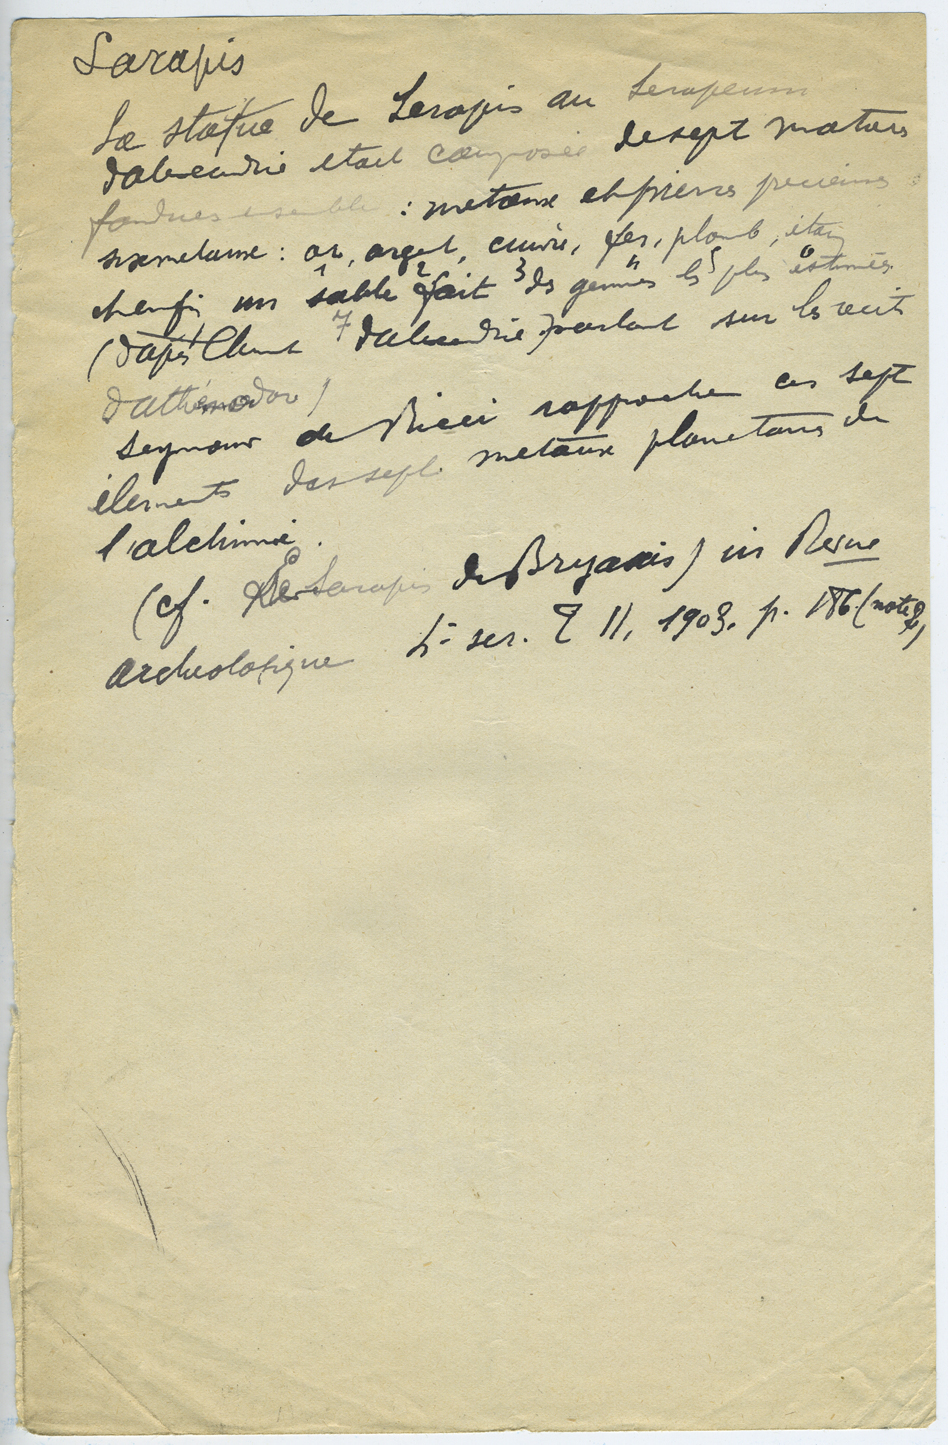 Sarapis
La statue de Serapis au Serapeum
d'alexandrie etait composée de sept matières
fondues ensemble : metaux et pierres precieuses :
six metaux : or, argent, cuivre, fer, plomb, étain
1 2 3 4 5 6
et enfin un sable fait des gemmes les plus estimées
7
(d'après Clement d'alexandrie) portant sur les recits
d'athénodor)
Seymour de Ricci rapproche ces sept
élements des sept metaux planetaires de
l'alchimie.
(cf. Le Sarapis de Bryaxis) in Revue
archeologique 4e ser. T II, 1903, p. 176 (note 2)